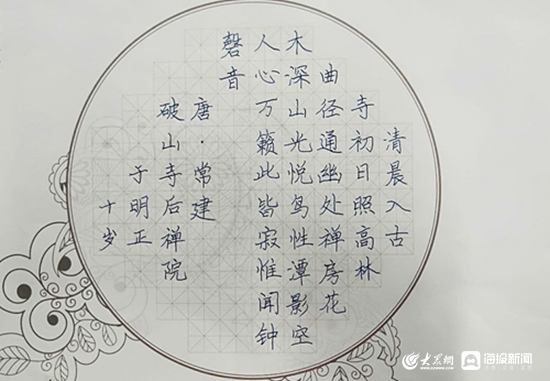 清晨入古
寺初日照高林
曲径通幽处禅房花
木深山光悦鸟性潭影空
人心万籁此皆寂惟闻钟
磬音
唐·常建
破山寺后禅院
于明正
十岁
大众网 海报新闻